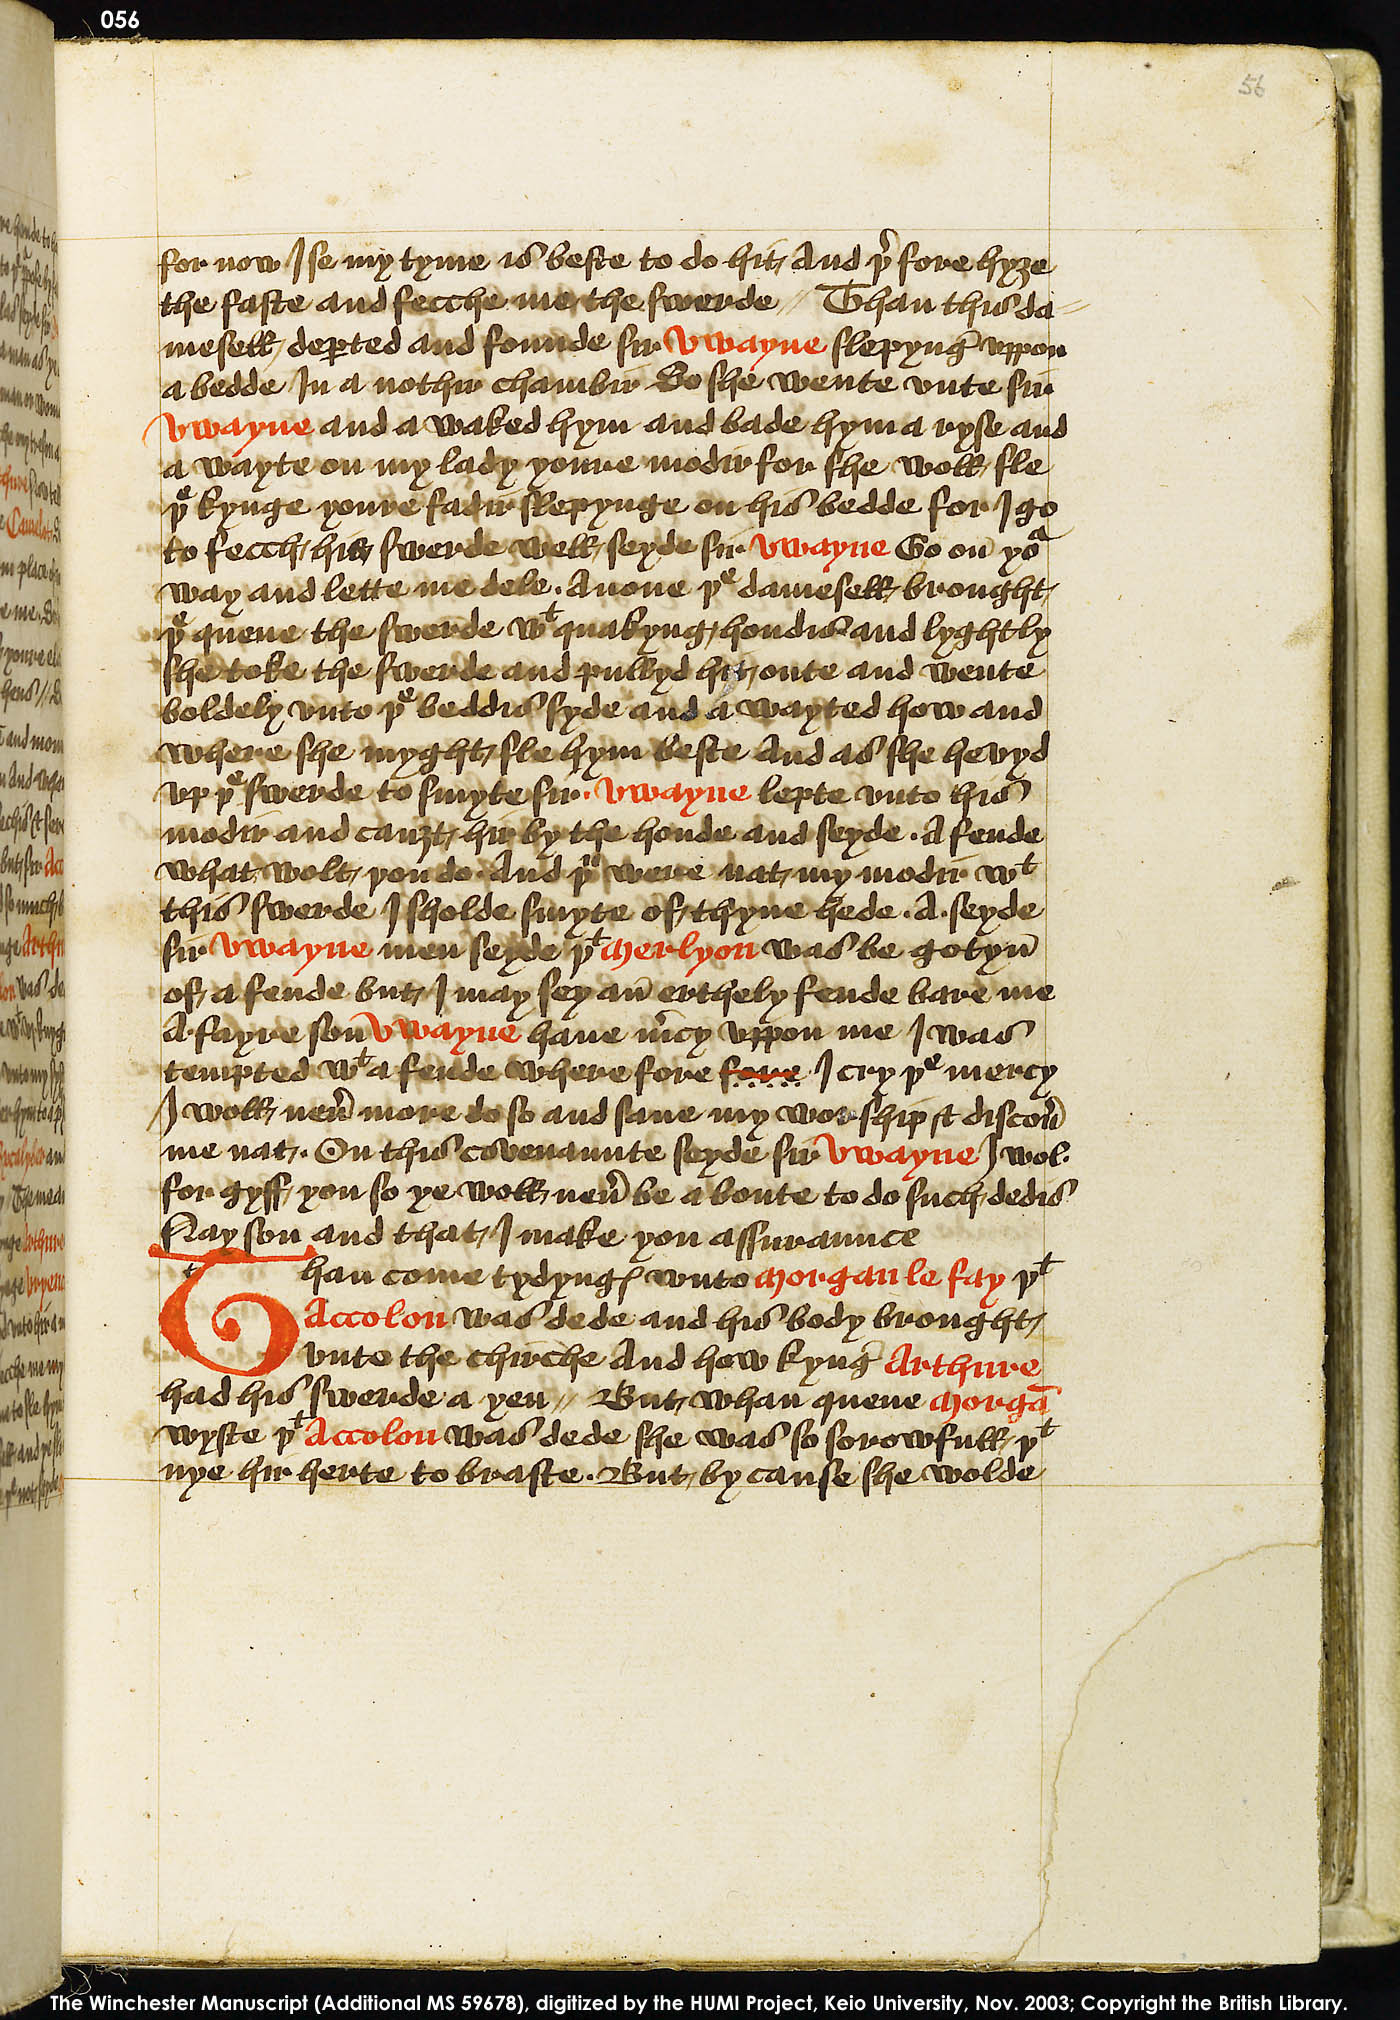 056
56
for now I se my tyme is beste to do hit, And þͬ fore hyȝe
the faste and fecche me the swerde // Than this da=
mesell, depted and founde sir Vwayne slepynḡ vppon
a bedde In a nothir chambir So she wente vnto sir
Vwayne and a waked hym and bade hym a ryse and
a wayte on my lady youre modir for she woll, sle
þͤ kynge youre fadir slepynge on his bedde for I go
to fecch, his, swerde well, seyde sir Vwayne Go on̄ yoͬ
way and lette me dele . Anone þͤ damesell, brought,
þͤ quene the swerde wͭ quakyng, hondis and lyghtly
she toke the swerde and pullyd hit, oute and wente
boldely vnto þͤ beddis syde and a wayted how and
where she myght, sle hym beste And as she hevyd
vp þͤ swerde to smyte sir . Vwayne lepte vnto his
modir and cauȝt, hir by the honde and seyde . A fende
what, wolt, þou do . And þͧ were nat, my modir wͭ
this swerde I sholde smyte of, thyne hede . A . seyde
sir Vwayne men seyde þͭ Merlyon was be gotyn̄
of, a fende but, I may sey an̄ erthely fende bare me
A fayre son Vwayne haue m̄cy vppon me I was
tempted wͭ a fende where fore fore I cry þͤ mercy
I woll, neū more do so and saue my worship & discoū
me nat, . On this covenaunte seyde sir Vwayne I wol .
for gyff, you so ye woll, neū be a boute to do such, dedis
Nay son and that, I make you assuraunce
t
Than come tydyngꝭ vnto Morgan le fay þͭ
Accolon was dede and his body brought,
vnto the chirche And how kynḡ Arthure
had his swerde a yen // But, whan quene Morgā
wyste þͭ Accolon was dede she was so sorowfull, þͭ
nye hir herte to braste . But, by cause she wolde
The Winchester Manuscript (Additional MS 59678), digitized by the HUMI Project, Keio University, Nov. 2003; Copyright the British Library.